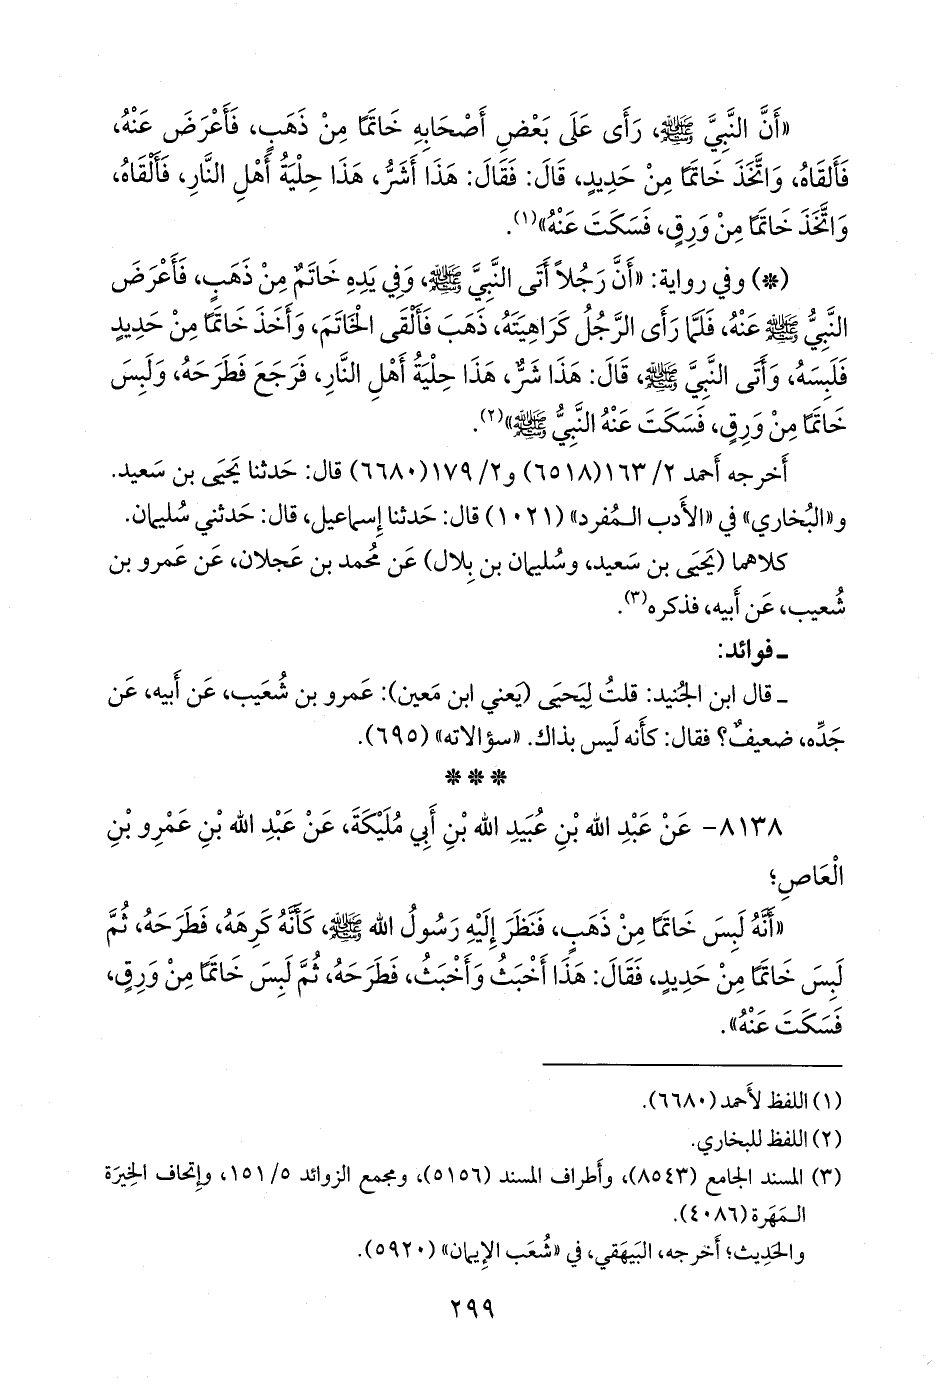 «أَنَّ النَّبِيَّ ﷺ، رَأَى عَلَى بَعْضِ أَصْحَابِهِ خَاتَمًا مِنْ ذَهَبٍ، فَأَعْرَضَ عَنْهُ،
فَأَلْقَاهُ، وَاتَّخَذَ خَاتَمًا مِنْ حَدِيدٍ، قَالَ: فَقَالَ: هَذَا أَشَرُّ، هَذَا حِلْيَةُ أَهْلِ النَّارِ، فَأَلْقَاهُ،
وَاتَّخَذَ خَاتَمًا مِنْ وَرِقٍ، فَسَكَتَ عَنْهُ»(١).
(*) وفي رواية: «أَنَّ رَجُلاً أَتَى النَّبِيَّ ﷺ، وَفِي يَدِهِ خَاتَمٌ مِنْ ذَهَبٍ، فَأَعْرَضَ
النَّبِيُّ ﷺ عَنْهُ، فَلَمَّا رَأَى الرَّجُلُ كَرَاهِيَتَهُ، ذَهَبَ فَأَلْقَى الْخَاتَمَ، وَأَخَذَ خَاتَمًا مِنْ حَدِيدٍ
فَلَبِسَهُ، وَأَتَى النَّبِيَّ ﷺ، قَالَ: هَذَا شَرٌّ، هَذَا حِلْيَةُ أَهْلِ النَّارِ، فَرَجَعَ فَطَرَحَهُ، وَلَبِسَ
خَاتَمًا مِنْ وَرِقٍ، فَسَكَتَ عَنْهُ النَّبِيُّ ﷺ»(٢).
أخرجه أحمد ٢/ ١٦٣(٦٥١٨) و٢/ ١٧٩(٦٦٨٠) قال: حَدثنا يَحيَى بن سَعيد.
و«البُخاري» في «الأَدب المُفرد» (١٠٢١) قال: حَدثنا إِسماعيل، قال: حَدثني سُليمان.
كلاهما (يَحيَى بن سَعيد، وسُليمان بن بِلال) عَن مُحمد بن عَجلان، عَن عَمرو بن
شُعيب، عَن أَبيه، فذكره(٣).
ـ فوائد:
ـ قال ابن الجُنيد: قلتُ لِيَحيَى (يَعني ابن مَعين): عَمرو بن شُعَيب، عَن أَبيه، عَن
جَدِّه، ضعيفٌ؟ فقال: كأَنه لَيس بذاك. «سؤالاته» (٦٩٥).
* * *
٨١٣٨- عَنْ عَبْدِ الله بْنِ عُبَيدِ الله بْنِ أَبِي مُلَيْكَةَ، عَنْ عَبْدِ الله بْنِ عَمْرِو بْنِ
الْعَاصِ؛
«أَنَّهُ لَبِسَ خَاتَمًا مِنْ ذَهَبٍ، فَنَظَرَ إِلَيْهِ رَسُولُ الله ﷺ، كَأَنَّهُ كَرِهَهُ، فَطَرَحَهُ، ثُمَّ
لَبِسَ خَاتَمًا مِنْ حَدِيدٍ، فَقَالَ: هَذَا أَخْبَثُ وَأَخْبَثُ، فَطَرَحَهُ، ثُمَّ لَبِسَ خَاتَمًا مِنْ وَرِقٍ،
فَسَكَتَ عَنْهُ».
(١) اللفظ لأَحمد (٦٦٨٠).
(٢) اللفظ للبخاري.
(٣) المسند الجامع (٨٥٤٣)، وأَطراف المسند (٥١٥٦)، ومجمع الزوائد ٥/ ١٥١، وإِتحاف الخِيرَة
المَهَرة (٤٠٨٦).
والحَدِيث؛ أَخرجه، البَيهَقي، في «شُعَب الإِيمان» (٥٩٢٠).
٢٩٩